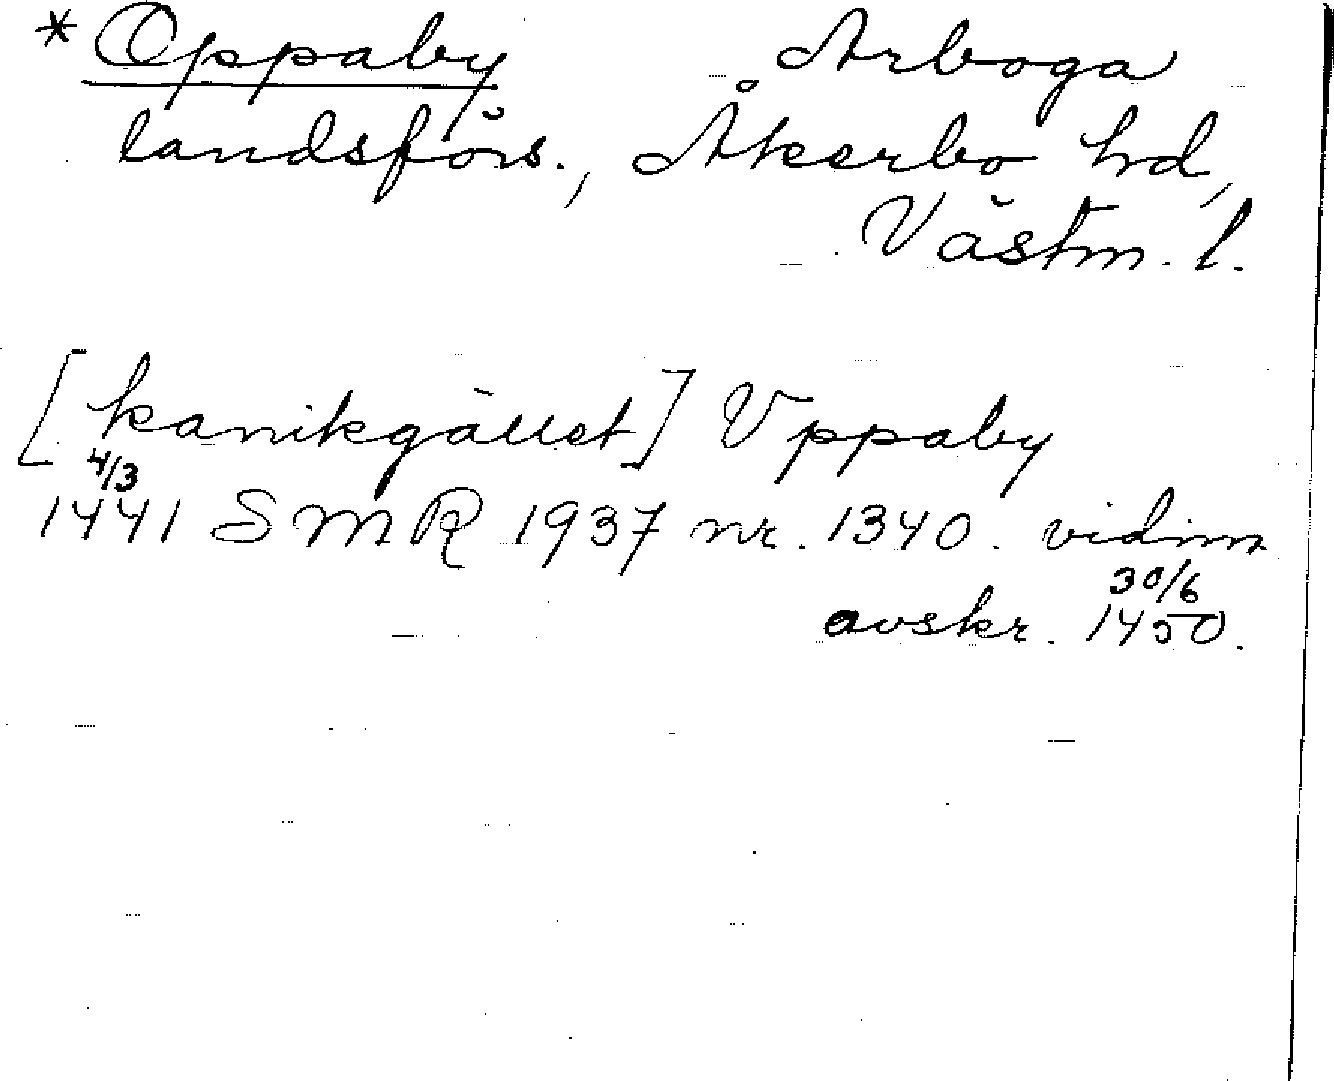 * Oppaby Arboga
landsförs., Åkerbo hd,
Västm. l.
[kanikgället] Vppaby
4/3
1441 SMR 1937 nr. 1340. vidim
30/6
avskr. 1450.